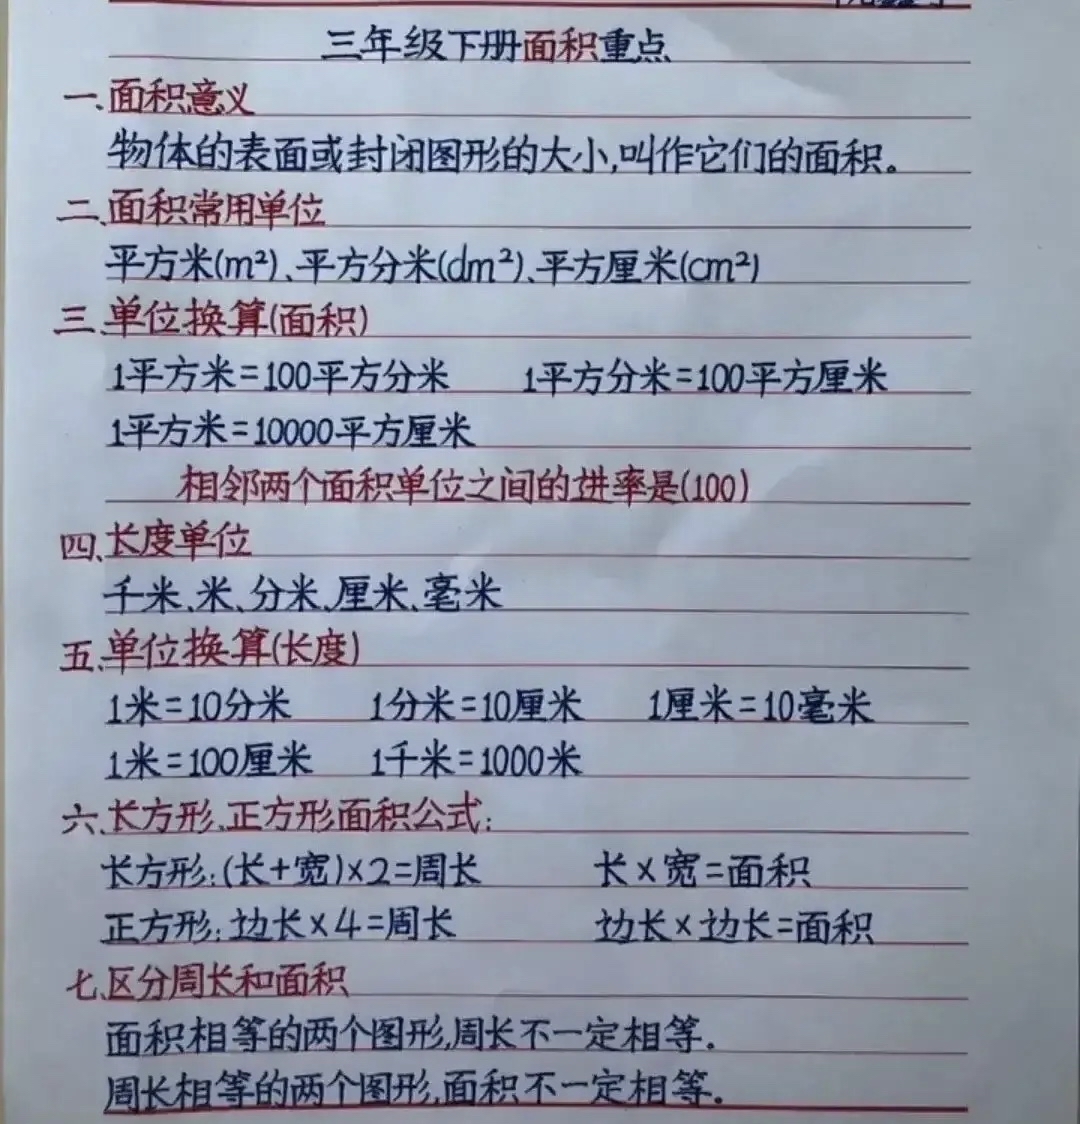 三年级下册面积重点
一、面积意义
物体的表面或封闭图形的大小,叫作它们的面积。
二、面积常用单位
平方米(m²)、平方分米(dm²)、平方厘米(cm²)
三、单位换算(面积)
1平方米=100平方分米 1平方分米=100平方厘米
1平方米=10000平方厘米
相邻两个面积单位之间的进率是(100)
四、长度单位
千米、米、分米、厘米、毫米
五、单位换算(长度)
1米=10分米 1分米=10厘米 1厘米=10毫米
1米=100厘米 1千米=1000米
六、长方形、正方形面积公式:
长方形:(长+宽)×2=周长 长×宽=面积
正方形:边长×4=周长 边长×边长=面积
七、区分周长和面积
面积相等的两个图形,周长不一定相等.
周长相等的两个图形,面积不一定相等.